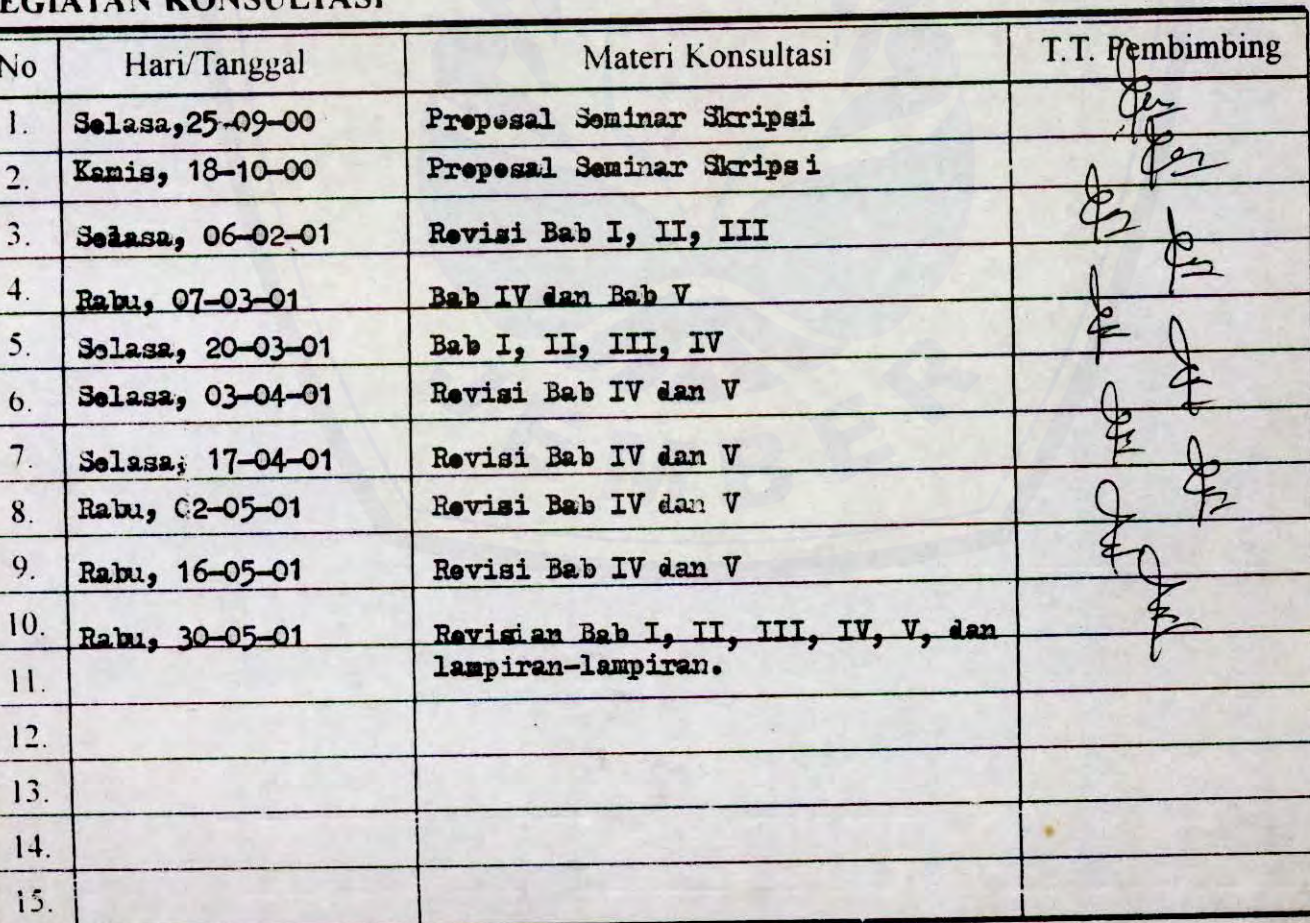 EGIATAN KONSULTASI
No Hari/Tanggal Materi Konsultasi T.T. Pembimbing
1. Selasa,25-09-00 Proposal Seminar Skripsi
2. Kamis, 18-10-00 Proposal Seminar Skripsi
3. Selasa, 06-02-01 Revisi Bab I, II, III
4. Rabu, 07-03-01 Bab IV dan Bab V
5. Selasa, 20-03-01 Bab I, II, III, IV
6. Selasa, 03-04-01 Revisi Bab IV dan V
7. Selasa, 17-04-01 Revisi Bab IV dan V
8. Rabu, 02-05-01 Revisi Bab IV dan V
9. Rabu, 16-05-01 Revisi Bab IV dan V
10. Rabu, 30-05-01 Revisian Bab I, II, III, IV, V, dan
11. lampiran-lampiran.
12.
13.
14.
15.